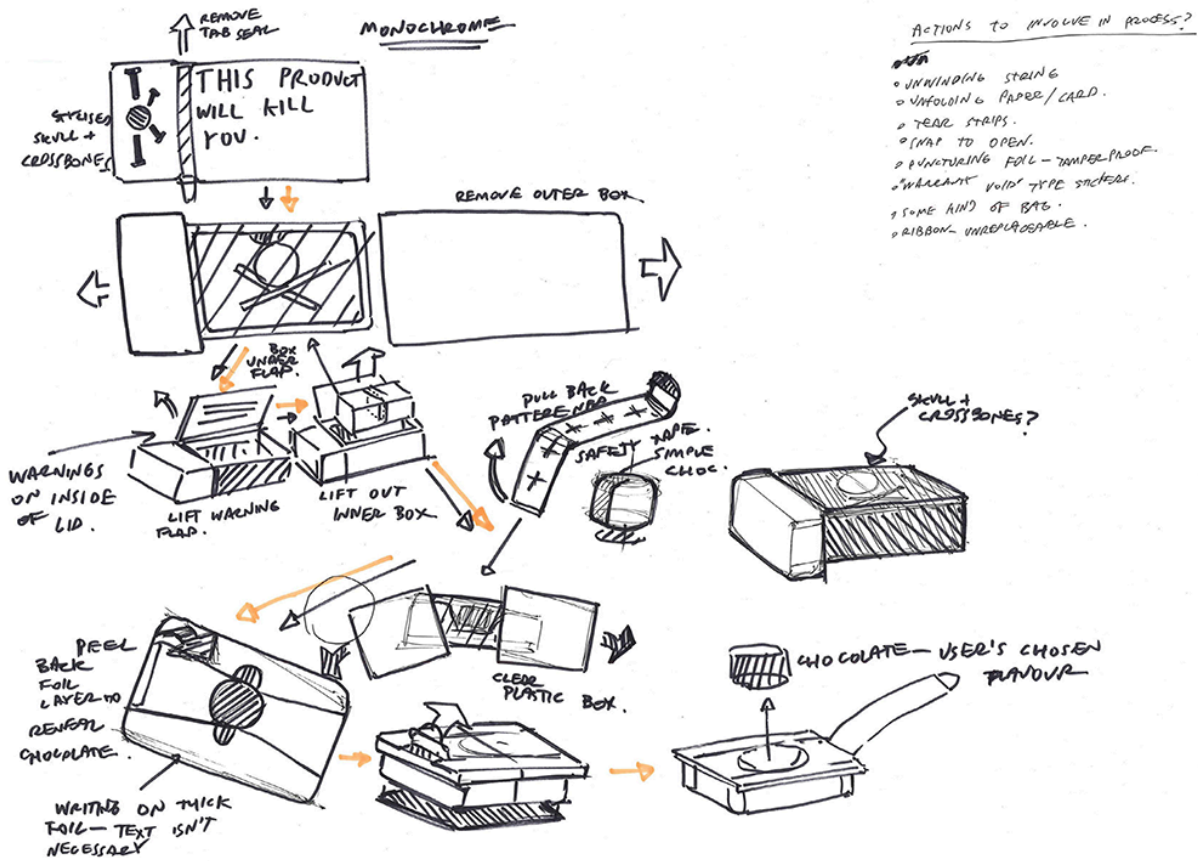 REMOVE
TAB SEAL
MONOCHROME
THIS PRODUCT
WILL KILL
YOU.
SKULL +
CROSSBONES
REMOVE OUTER BOX
ACTIONS TO INVOLVE IN PROCESS?
• UNWINDING STRING
• UNFOLDING PAPER/CARD.
• TEAR STRIPS.
• SNAP TO OPEN.
• PUNCTURING FOIL – TAMPERPROOF.
• "WARRANTY VOID" TYPE STICKERS.
• SOME KIND OF BAG.
• RIBBON – UNREPLACEABLE.
BOX
UNDER
FLAP.
WARNINGS
ON INSIDE
OF LID.
LIFT WARNING
FLAP.
LIFT OUT
INNER BOX
PULL BACK
SAFETY TAPE.
SIMPLE
CHOC.
SKULL +
CROSSBONES?
PEEL
BACK
FOIL
LAYER TO
REVEAL
CHOCOLATE.
CLEAR
PLASTIC BOX.
CHOCOLATE – USER'S CHOSEN
FLAVOUR
WRITING ON THICK
FOIL – TEXT ISN'T
NECESSARY